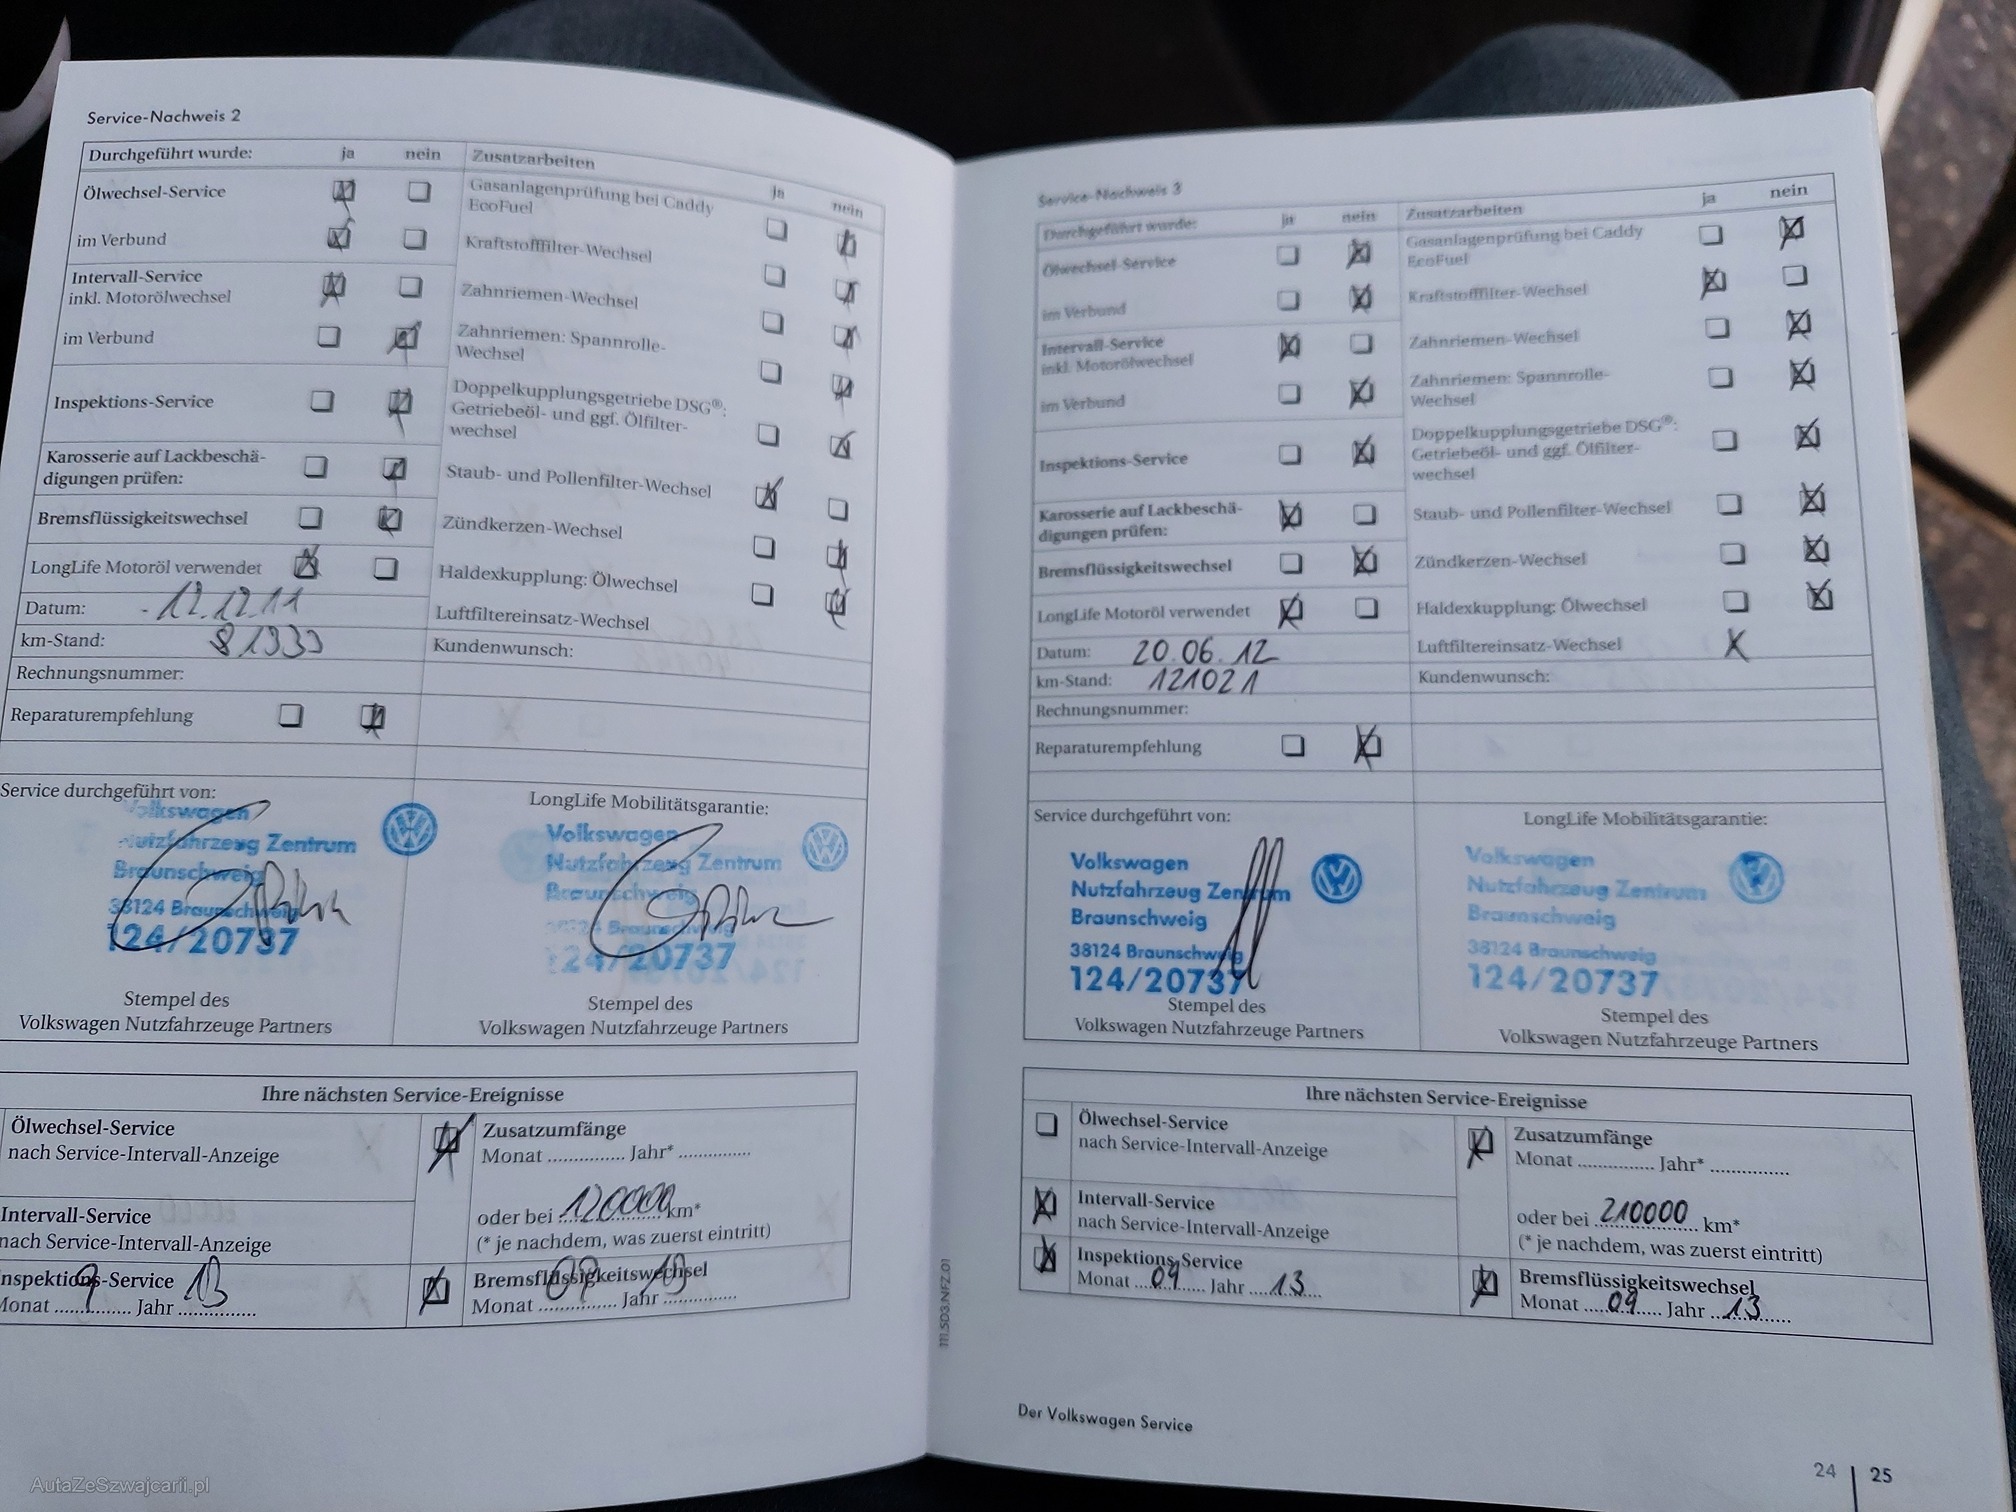 Service-Nachweis 2
Durchgeführt wurde: ja nein Zusatzarbeiten ja nein
Ölwechsel-Service
im Verbund
Intervall-Service
inkl. Motorölwechsel
im Verbund
Inspektions-Service
Karosserie auf Lackbeschä-
digungen prüfen:
Bremsflüssigkeitswechsel
LongLife Motoröl verwendet
Datum: 12.12.11
km-Stand: 81333
Rechnungsnummer:
Reparaturempfehlung
Gasanlagenprüfung bei Caddy
EcoFuel
Kraftstofffilter-Wechsel
Zahnriemen-Wechsel
Zahnriemen: Spannrolle-
Wechsel
Doppelkupplungsgetriebe DSG®:
Getriebeöl- und ggf. Ölfilter-
wechsel
Staub- und Pollenfilter-Wechsel
Zündkerzen-Wechsel
Haldexkupplung: Ölwechsel
Luftfiltereinsatz-Wechsel
Kundenwunsch:
Service durchgeführt von:
Volkswagen
Nutzfahrzeug Zentrum
Braunschweig
38124 Braunschweig
124/20737
Stempel des
Volkswagen Nutzfahrzeuge Partners
LongLife Mobilitätsgarantie:
Volkswagen
Nutzfahrzeug Zentrum
Braunschweig
38124 Braunschweig
124/20737
Stempel des
Volkswagen Nutzfahrzeuge Partners
Ihre nächsten Service-Ereignisse
Ölwechsel-Service
nach Service-Intervall-Anzeige
Intervall-Service
nach Service-Intervall-Anzeige
Inspektions-Service
Monat 9 Jahr 13
Zusatzumfänge
Monat ............... Jahr* ...............
oder bei 120000 km*
(* je nachdem, was zuerst eintritt)
Bremsflüssigkeitswechsel
Monat 09 Jahr 13
Service-Nachweis 3
Durchgeführt wurde: ja nein Zusatzarbeiten ja nein
Ölwechsel-Service
im Verbund
Intervall-Service
inkl. Motorölwechsel
im Verbund
Inspektions-Service
Karosserie auf Lackbeschä-
digungen prüfen:
Bremsflüssigkeitswechsel
LongLife Motoröl verwendet
Datum: 20.06.12
km-Stand: 121021
Rechnungsnummer:
Reparaturempfehlung
Gasanlagenprüfung bei Caddy
EcoFuel
Kraftstofffilter-Wechsel
Zahnriemen-Wechsel
Zahnriemen: Spannrolle-
Wechsel
Doppelkupplungsgetriebe DSG®:
Getriebeöl- und ggf. Ölfilter-
wechsel
Staub- und Pollenfilter-Wechsel
Zündkerzen-Wechsel
Haldexkupplung: Ölwechsel
Luftfiltereinsatz-Wechsel X
Kundenwunsch:
Service durchgeführt von:
Volkswagen
Nutzfahrzeug Zentrum
Braunschweig
38124 Braunschweig
124/20737
Stempel des
Volkswagen Nutzfahrzeuge Partners
LongLife Mobilitätsgarantie:
Volkswagen
Nutzfahrzeug Zentrum
Braunschweig
38124 Braunschweig
124/20737
Stempel des
Volkswagen Nutzfahrzeuge Partners
Ihre nächsten Service-Ereignisse
Ölwechsel-Service
nach Service-Intervall-Anzeige
Intervall-Service
nach Service-Intervall-Anzeige
Inspektions-Service
Monat 09 Jahr 13
Zusatzumfänge
Monat ............... Jahr* ...............
oder bei 210000 km*
(* je nachdem, was zuerst eintritt)
Bremsflüssigkeitswechsel
Monat 09 Jahr 13
111.5D3.NFZ.01
Der Volkswagen Service
24 | 25
AutaZeSzwajcarii.pl